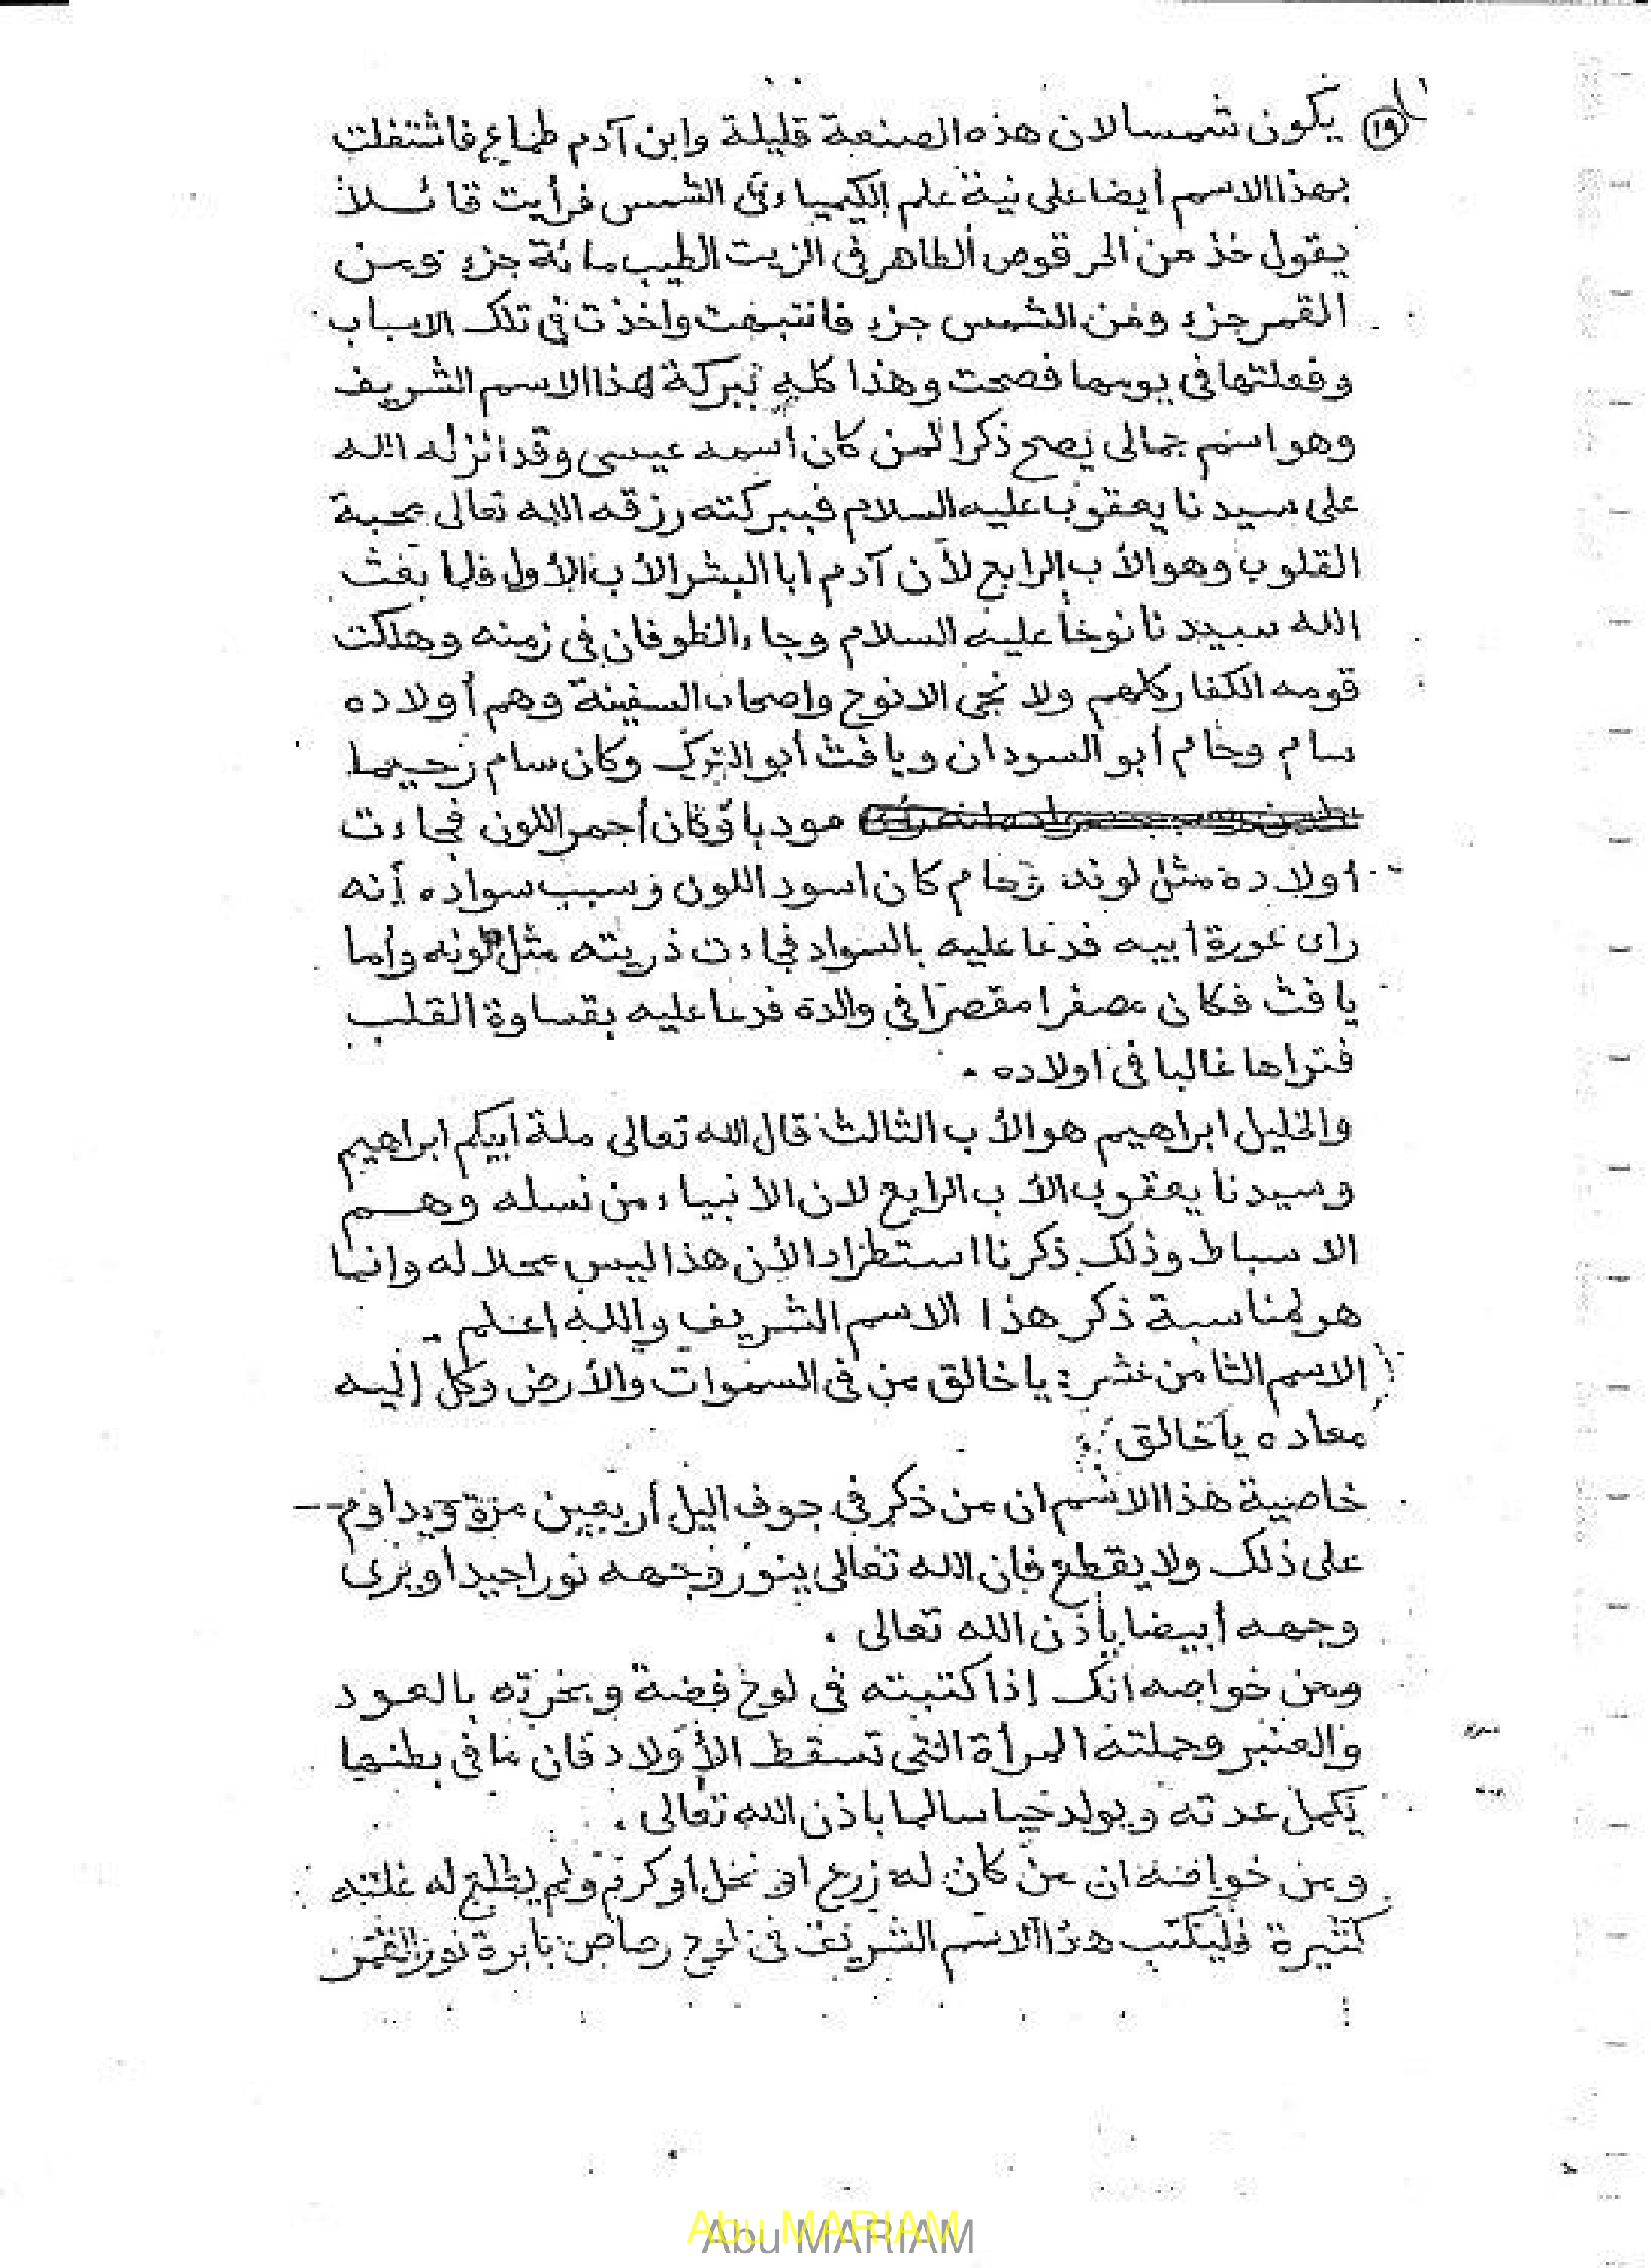 ١٩ يكون شمسا لان هذه الصنعة قليلة وابن آدم طماع فاشتغلت
بهذا الاسم أيضا على نية علم الكيمياء فى الشمس فرأيت قائلا
يقول خذ من المرقوص الطاهر فى الزيت الطيب مائة جزء ومن
القمر جزء ومن الشمس جزء فانتبهت واخذت فى تلك الاسباب
وفعلتها فى يومها فصحت وهذا كله ببركة هذا الاسم الشريف
وهو اسم جمالى يصح ذكرا لمن كان أسمه عيسى وقد انزله الله
على سيدنا يعقوب عليه السلام فببركته رزقه الله تعالى محبة
القلوب وهو الأب الرابع لأن آدم ابا البشر الأب الأول فلما بعث
الله سيدنا نوحا عليه السلام وجاء الطوفان فى زمنه وهلكت
قومه الكفار كلهم ولا نجى الا نوح واصحاب السفينة وهم أولاده
سام وحام أبو السودان ويافث أبو الترك وكان سام رحيما
مودبا وكان أحمر اللون فجاءت
اولاده مثل لونه وحام كان اسود اللون وسبب سواده أنه
راى عورة ابيه فدعا عليه بالسواد فجاءت ذريته مثل لونه وأما
يافث فكان مصفرا مقصرا فى والده فدعا عليه بقساوة القلب
فتراها غالبا فى اولاده .
والخليل ابراهيم هو الأب الثالث قال الله تعالى ملة ابيكم ابراهيم
وسيدنا يعقوب الأب الرابع لان الأنبياء من نسله وهم
الاسباط وذلك ذكرنا استطرادا لأن هذا ليس محلا له وانما
هو لمناسبة ذكر هذا الاسم الشريف والله اعلم .
الاسم الثامن عشر : يا خالق من فى السموات والأرض وكل إليه
معاده يا خالق :
خاصية هذا الاسم ان من ذكر فى جوف اليل أربعين مرة ويداوم
على ذلك ولا يقطع فان الله تعالى ينور وجهه نورا جيدا ويرى
وجهه أبيضا بأذن الله تعالى .
ومن خواصه انك إذا كتبته فى لوح فضة وبخرته بالعود
والعنبر وحملته المرأة التى تسقط الأولاد فان ما فى بطنها
يكمل عدته ويولد حيا سالما باذن الله تعالى .
ومن خواصه ان من كان له زرع او نخل أو كرم ولم يطلع له غلته
كثيرة فليكتب هذا الاسم الشريف فى لوح رصاص بابرة نور القمر
Abu MARIAM